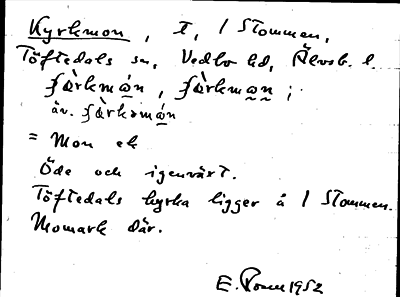 Kyrkmon, t, 1 Stommen,
Töftedals sn, Vedbo hd, Älvsb. l.
ʃɑ̀rkmo̱n, ʃɑ̀rkmo̰n;
äv. ʃɑ̀rkəmo̱n
= Mon ek
Öde och igenväxt.
Töftedals kyrka ligger å 1 Stommen.
Momark där.
E. 1952